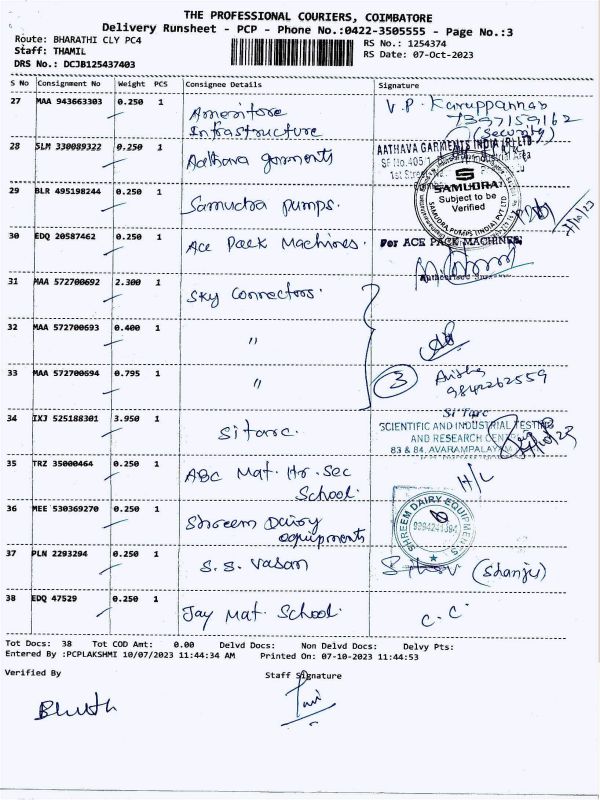 THE PROFESSIONAL COURIERS, COIMBATORE
Delivery Runsheet - PCP - Phone No.:0422-3505555 - Page No.:3
Route: BHARATHI CLY PC4
Staff: THAMIL
DRS No.: DCJB125437403
RS No.: 1254374
RS Date: 07-Oct-2023
S No Consignment No Weight PCS Consignee Details Signature
27 MAA 943663303 0.250 1 Ameritore Infrastructure V.P. Karuppannan
7397159162
(Security)
28 SLM 330089322 0.250 1 Aathava garments AATHAVA GARMENTS INDIA (P) LTD
SF No.405/1 Industrial Area
1st Street
29 BLR 495198244 0.250 1 Samudra pumps. SAMUDRA
Subject to be
Verified
SAMUDRA PUMPS (INDIA) PVT LTD
7/10/23
30 EDQ 20587462 0.250 1 Ace Pack Machines. For ACE PACK MACHINES,
31 MAA 572700692 2.300 1 Sky Connectors.
32 MAA 572700693 0.400 1 "
33 MAA 572700694 0.795 1 " 3
9842262559
34 IXJ 525188301 3.950 1 Sitarc. Si'Tarc
SCIENTIFIC AND INDUSTRIAL TESTING
AND RESEARCH CENTRE
83 & 84, AVARAMPALAYAM
35 TRZ 35000464 0.250 1 ABC Mat. Hr. Sec School. H/L
36 MEE 530369270 0.250 1 Shreem Dairy equipments SHREEM DAIRY EQUIPMENTS
9994241394
37 PLN 2293294 0.250 1 S.S. Vasan (Shanju)
38 EDQ 47529 0.250 1 Jay Mat. School. C.C.
Tot Docs: 38 Tot COD Amt: 0.00 Delvd Docs: Non Delvd Docs: Delvy Pts:
Entered By :PCPLAKSHMI 10/07/2023 11:44:34 AM Printed On: 07-10-2023 11:44:53
Verified By Staff Signature